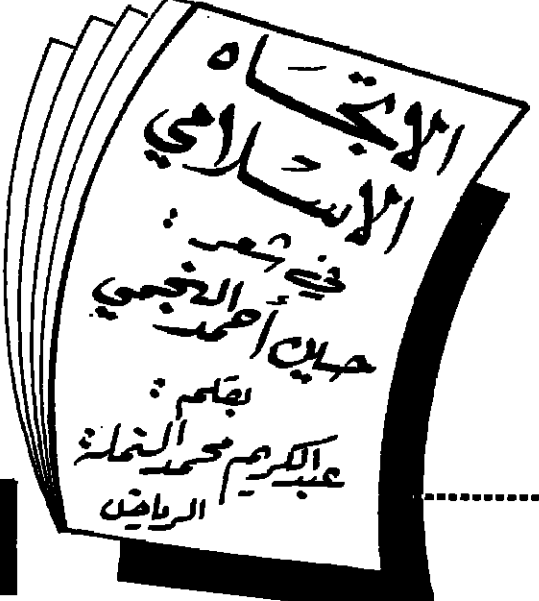 الاتجاه
الاسلامي
في شعر :
حسين أحمد النجمي
بقلم :
عبدالكريم محمد النملة
الرياض